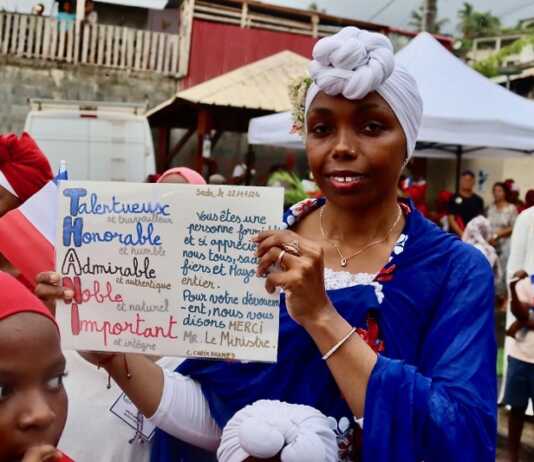 Sada, le 22/04/24
Talentueux
et travailleur
Honorable
et humble
Admirable
et authentique
Noble
et naturel
Important
et intègre
Vous êtes une
personne formi
et si apprécié
nous tous, sad
fiers et Mayo
entier.
Pour votre dévouem
-ent, nous vous
disons MERCI
Mr. Le Ministre.